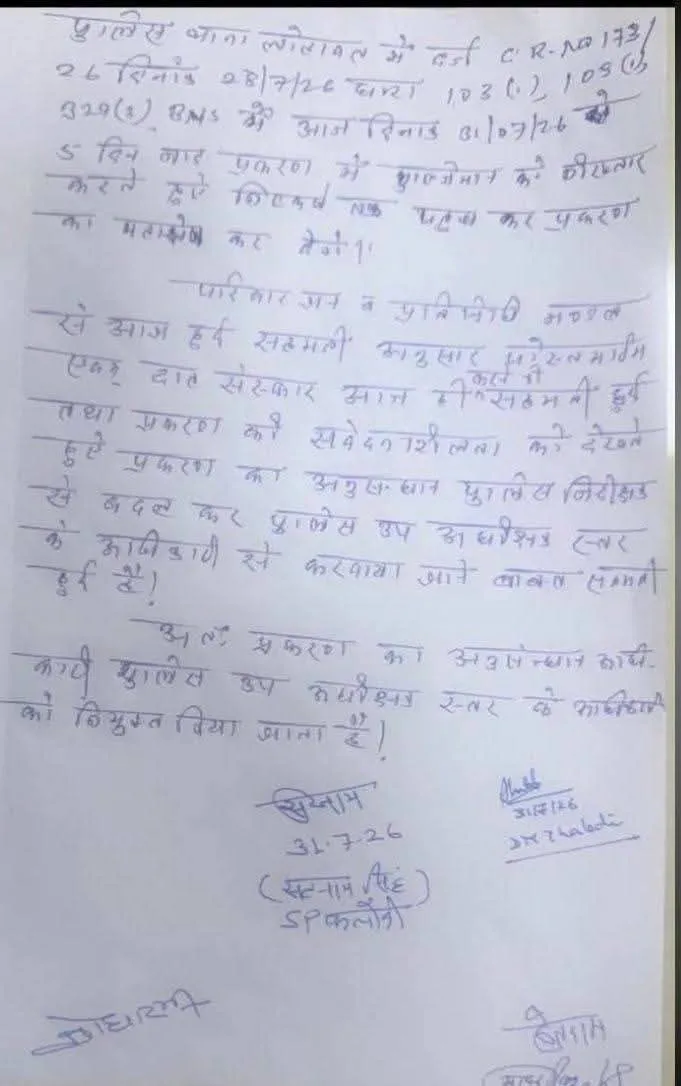 पुलिस थाना लोहावट में दर्ज C R-NO 173/
26 दिनांक 28/7/26 धारा 103(1), 109(1)
329(3) BNS में आज दिनांक 31/07/26 से
5 दिन बाद प्रकरण में मुल्जिमान को गिरफ्तार
करते हुऐ निष्कर्ष पहुच कर प्रकरण
का कर देंगे।
परिवार जन व प्रतिनिधी मण्डल
से आज हुई सहमती अनुसार पोस्टमार्टम
एवम् दाह संस्कार आज ही करने की सहमती हुई
तथा प्रकरण की संवेदनशीलता को देखते
हुऐ प्रकरण का अनुसन्धान पुलिस निरीक्षक
से बदल कर पुलिस उप अधीक्षक स्तर
के अधिकारी से करवाया जाने बाबत सहमती
हुई है!
अतः प्रकरण का अनुसंन्धान अधि-
कारी पुलिस उप अधीक्षक स्तर के अधिकारी
को नियुक्त किया जाता है!
31.7.26
(सतनाम सिंह)
SP फलौदी
31/7/26